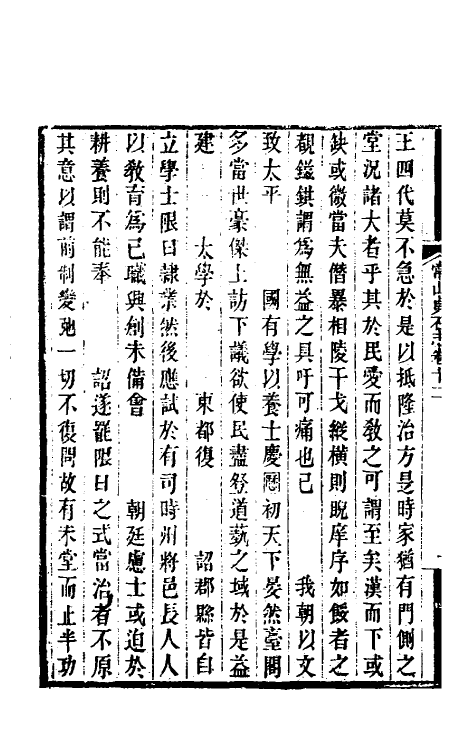 王四代莫不急於是以抵隆治方是時家猶有門側之
堂況諸大者乎其於民愛而敎之可謂至矣漢而下或
缺或微當夫僭暴相陵干戈縱橫則睨庠序如餒者之
覩鎡錤謂爲無益之具吁可痛也已　我朝以文
致太平　國有學以養士慶曆初天下晏然臺閣
多當世豪傑上訪下議欲使民盡登道藝之域於是益
建　太學於　東都復　詔郡縣皆自
立學士限日隸業然後應試於有司時州將邑長人人
以敎育爲己職興創未備會　朝廷慮士或迫於
耕養則不能奉　詔遂罷限日之式當治者不原
其意以謂前制變更一切不復問故有未堂而止半功
常山貞石志卷十二